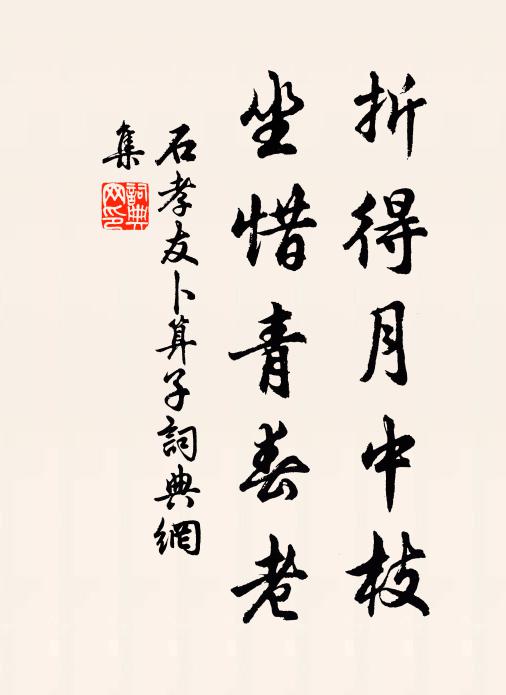 折得月中枝
坐惜青春老
石孝友卜算子詞典網
集
詞典网印